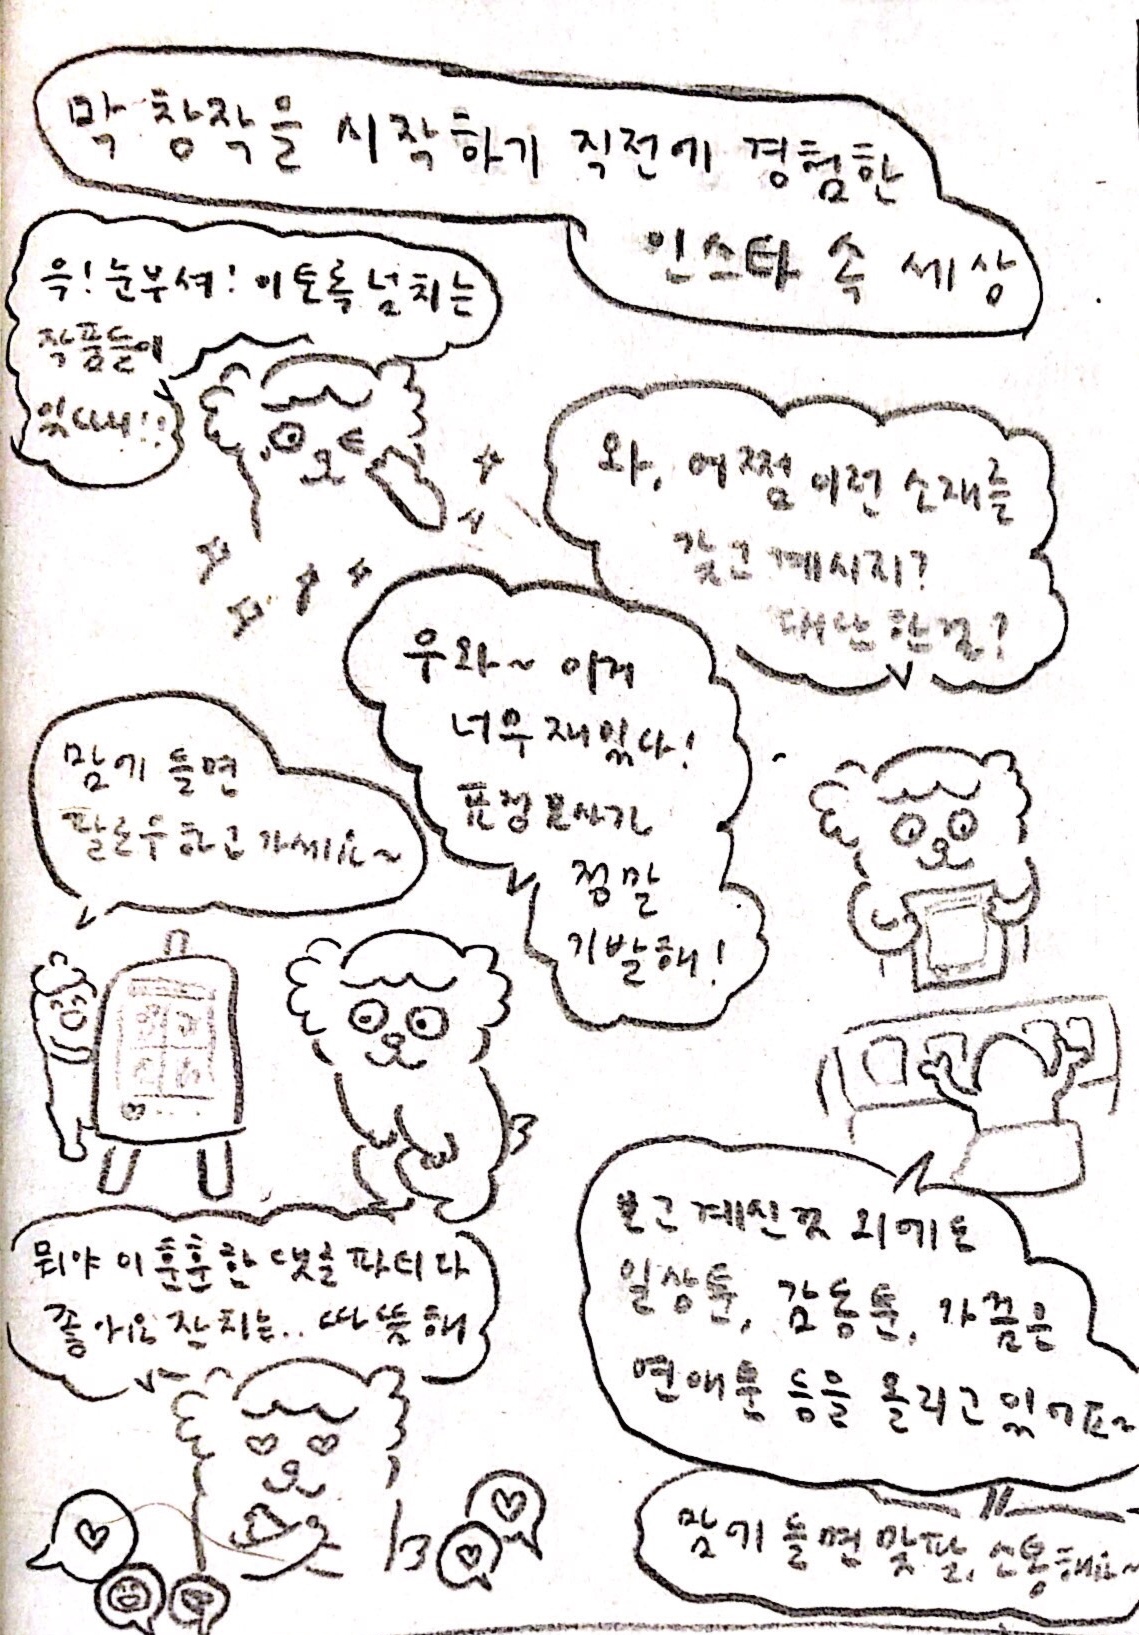 막 창작을 시작하기 직전에 경험한
인스타 속 세상
윽! 눈부셔! 이토록 넘치는
작품들이
있다니!!
와, 어쩜 이런 소재를
갖고 계시지?
대단한걸?
우와~ 이거
너무 재밌다!
표정묘사가
정말
기발해!
맘에 들면
팔로우하고 가세요~
보고 계신 것 외에도
일상툰, 감동툰, 가끔은
연애툰 등을 올리고 있어요~
맘에 들면 맞팔, 소통해요~
뭐야 이 훈훈한 댓글파티다
좋아요 잔치는.. 따뜻해